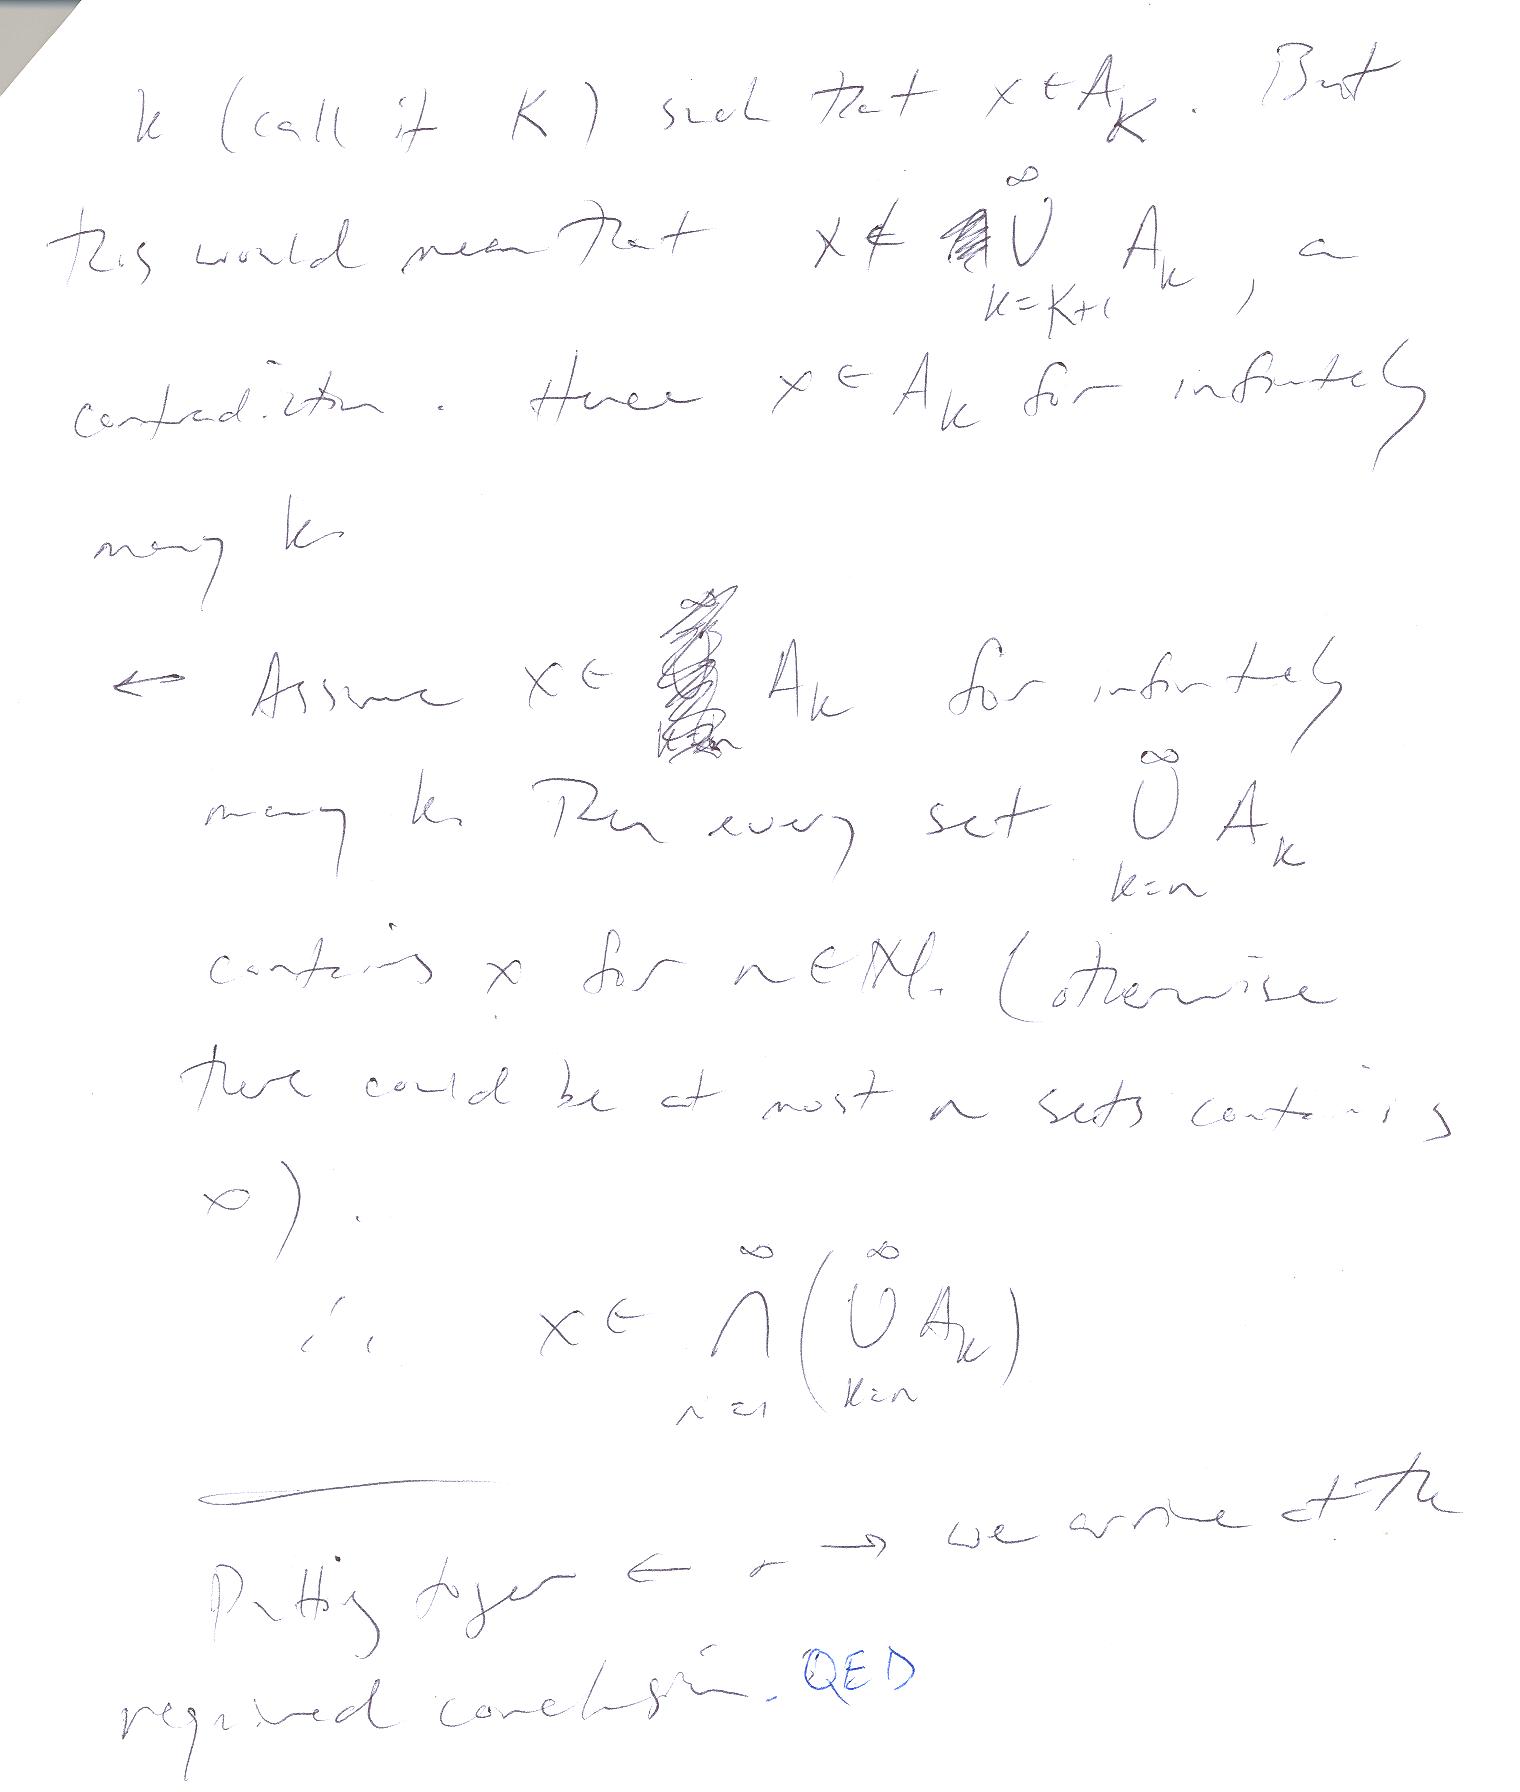 k (call it K) such that x ∈ A_K. But
this would mean that x ∉ ⋃_{k=K+1}^∞ A_k, a
contradiction. Hence x ∈ A_k for infinitely
many k.
← Assume x ∈ A_k for infinitely
many k. Then every set ⋃_{k=n}^∞ A_k
contains x for n ∈ ℕ. (otherwise
there could be at most n sets containing
x).
∴ x ∈ ⋂_{n=1}^∞ (⋃_{k=n}^∞ A_k)
Putting together ← + → we arrive at the
required conclusion. QED